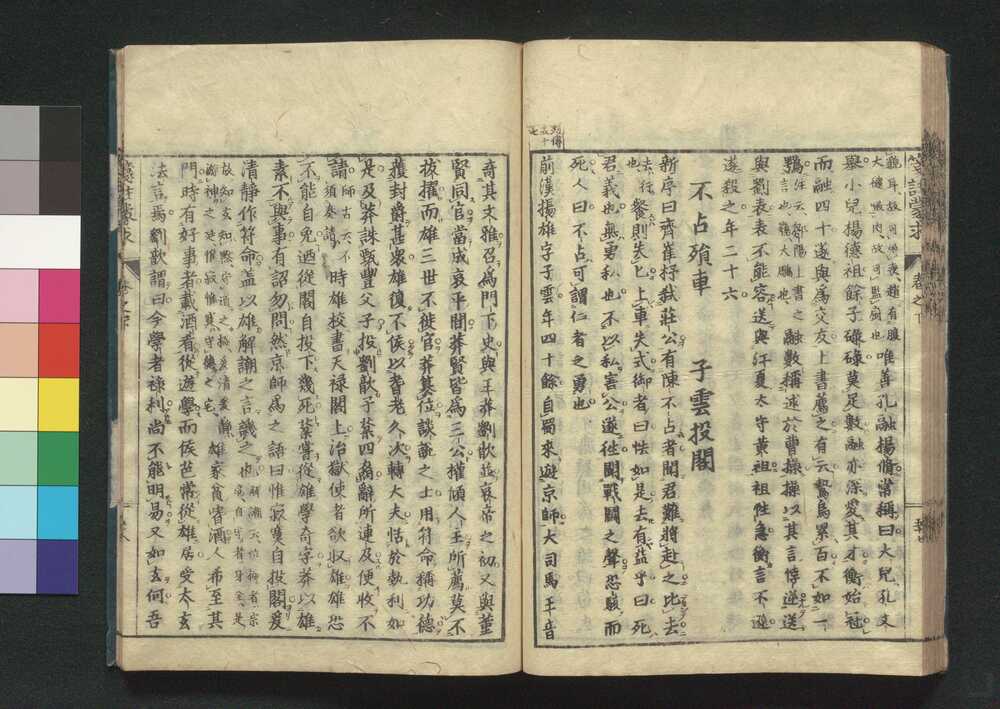 箋註蒙求
卷之下
唯善孔融揚脩常稱曰大兒孔文
擧小兒揚德祖餘子碌碌莫足數融亦深愛其才衡始冠
而融四十遂與爲交友上書薦之有云鷙鳥累百不如一
鶚融數稱述於曹操操以其言悖逆送
與劉表表不能容送與江夏太守黄祖祖性急衡言不遜
遂殺之年二十六
不占殞車 子雲投閣
新序曰齊崔杼弑莊公有陳不占者聞君難將赴之比去
餐則失匕上車失式御者曰怯如是去有益乎曰死
君義也無勇私也不以私害公遂往聞戰鬪之聲恐駭而
死人曰不占可謂仁者之勇也
前漢揚雄字子雲年四十餘自蜀來遊京師大司馬王音
奇其文雅召爲門下史與王莽劉歆並哀帝之初又與董
賢同官當成哀平間莽賢皆爲三公權傾人主所薦莫不
拔擢而雄三世不徙官莽簒位談說之士用符命稱功德
獲封爵甚衆雄復不侯以耆老久次轉大夫恬於勢利如
是及莽誅甄豐父子投劉歆子棻四裔辭所連及便收不
請時雄校書天祿閣上治獄使者欲收雄雄恐
不能自免迺從閣自投下幾死棻嘗從雄學奇字莽以雄
素不與事有詔勿問然京師爲之語曰惟寂寞自投閣爰
清靜作符命蓋以雄解謝之言譏之也
雄家貧嗜酒人希至其
門時有好事者載酒肴從遊學而侯芭常從雄居受太玄
法言焉劉歆謂曰今學者祿利尚不能明易又如玄何吾